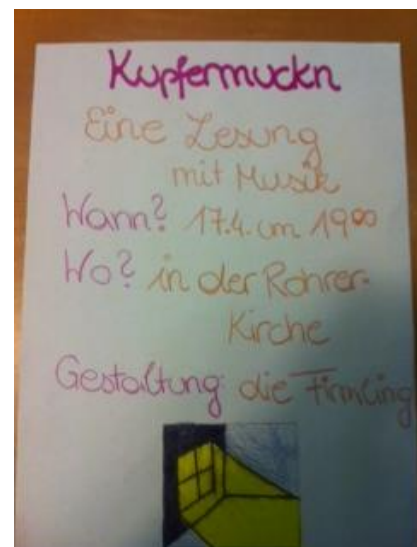 Kupfermuckn
Eine Lesung
mit Musik
Wann? 17.4. um 19⁰⁰
Wo? in der Rohrer-
Kirche
Gestaltung: die Firmling